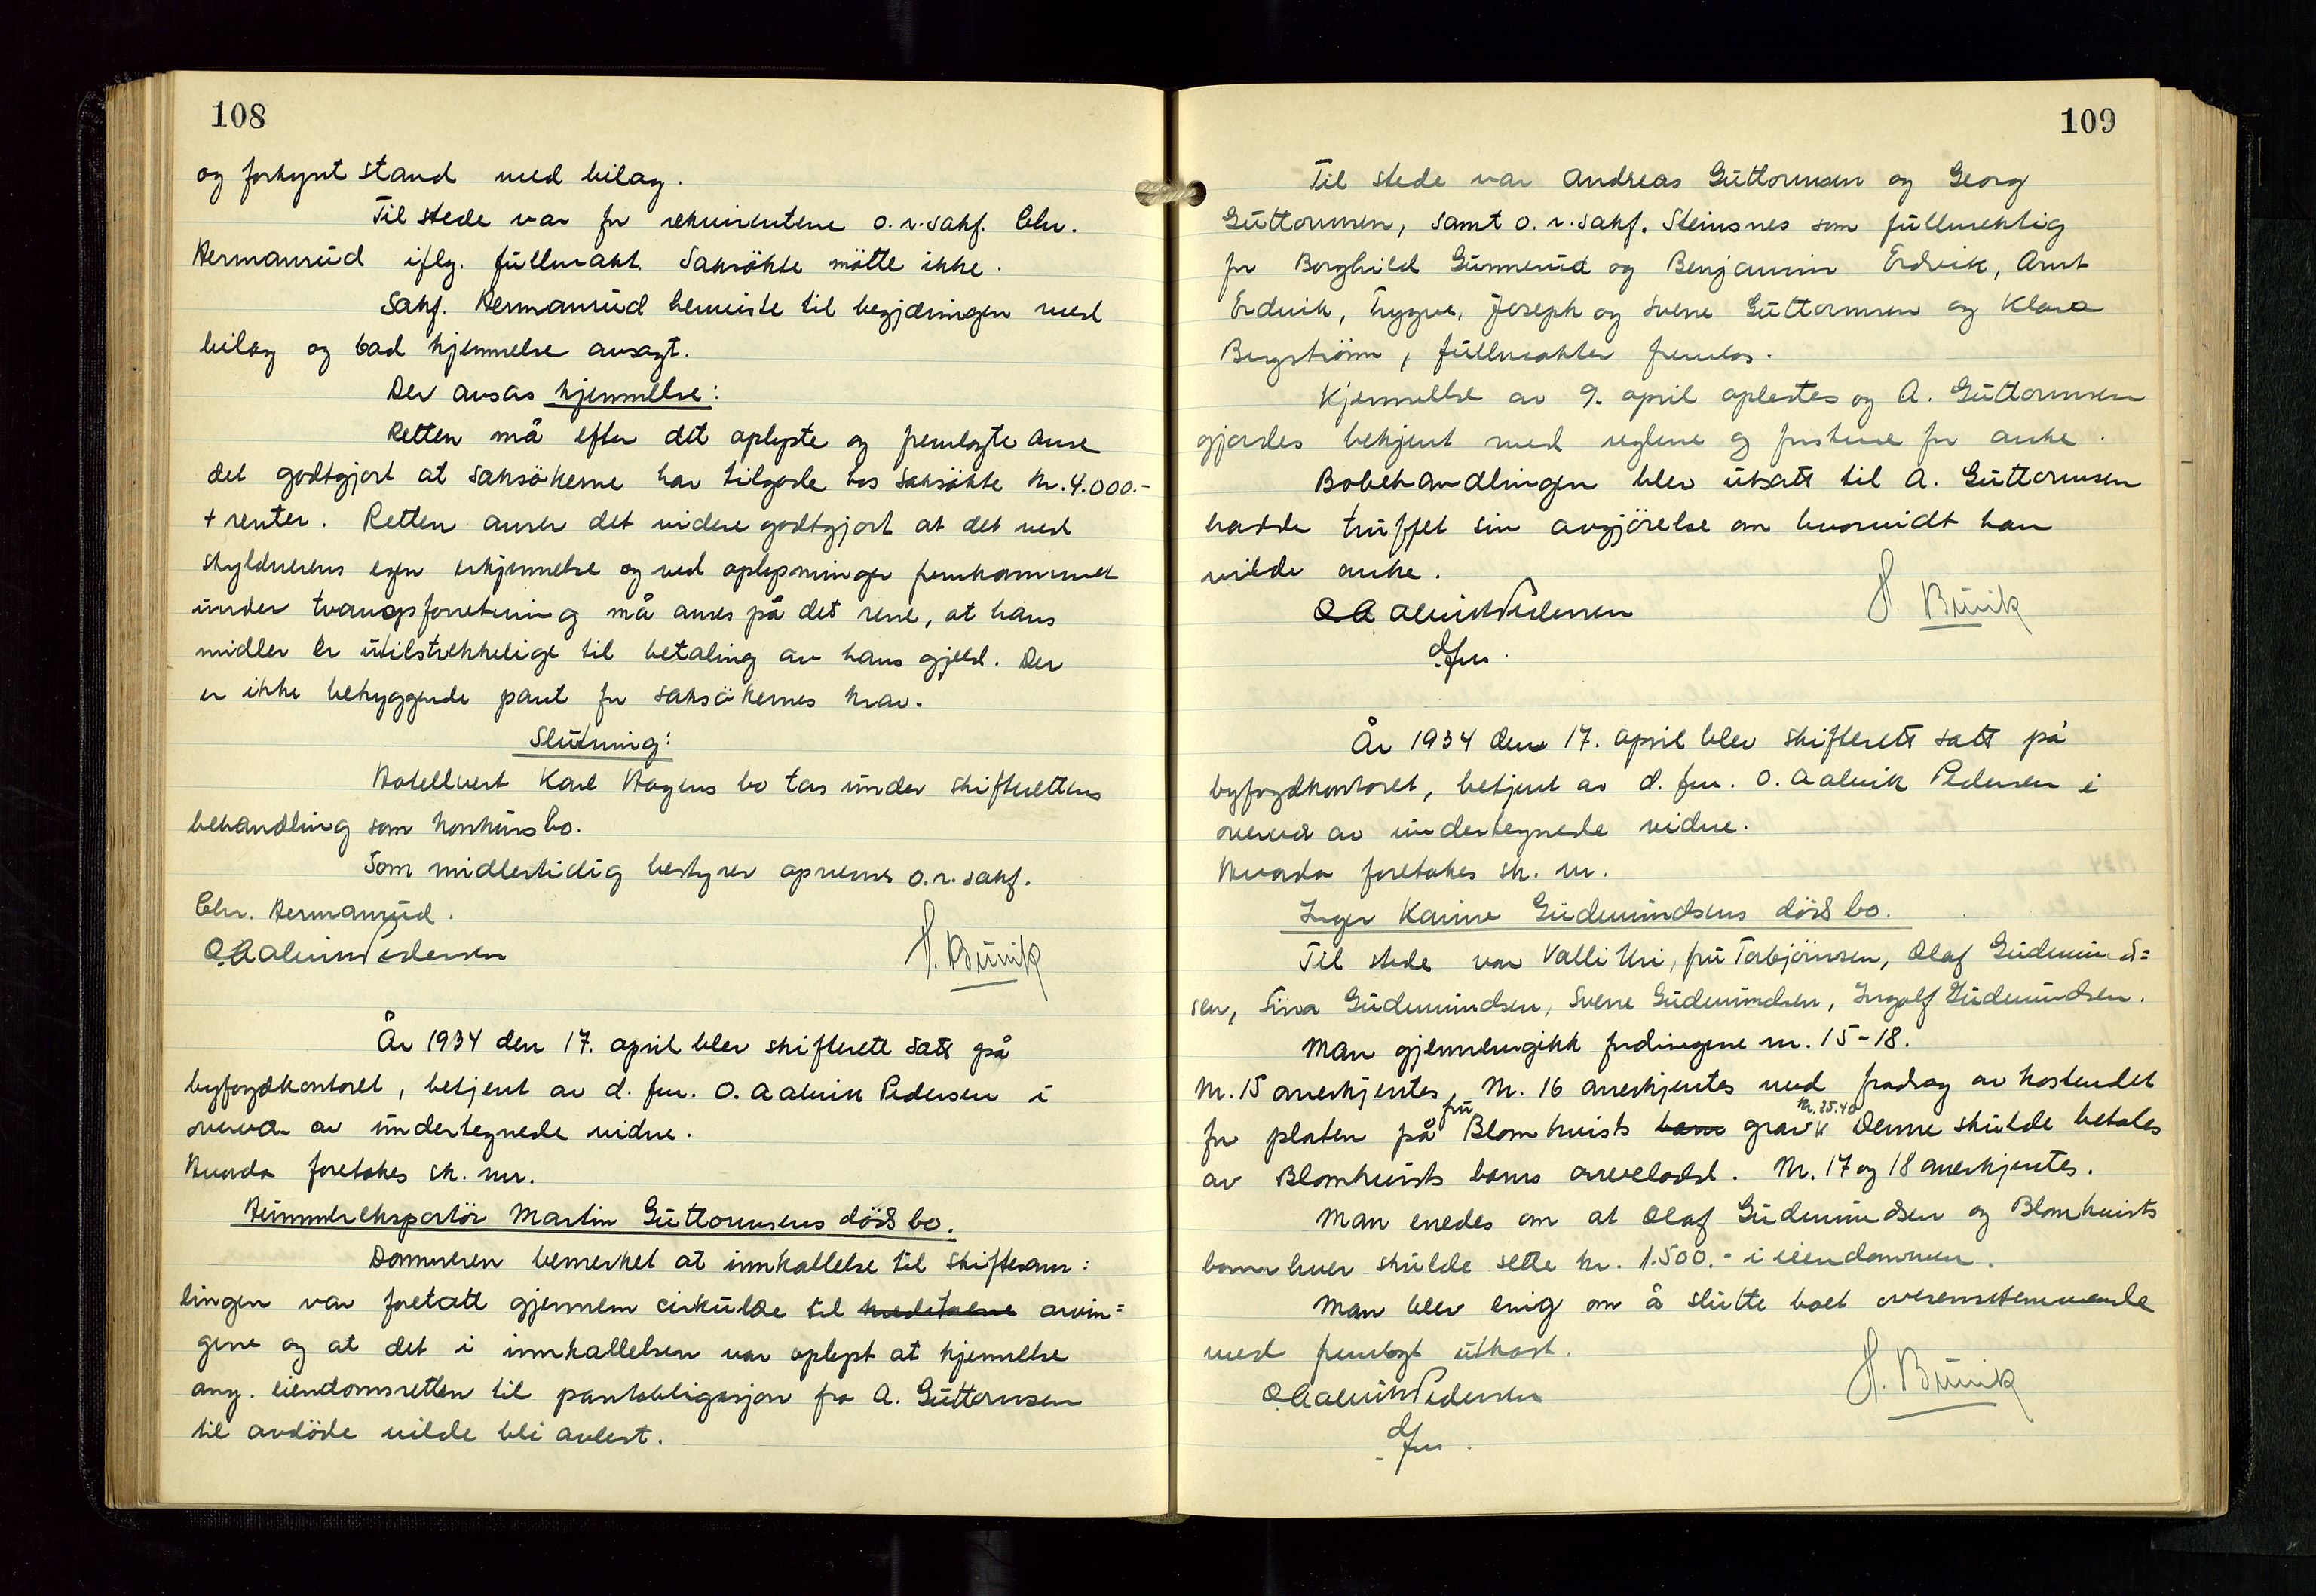 108
og forkynt stand med bilag.
Til stede var for rekvirentene o.r.sakf. Chr.
Hermanrud iflg. fullmakt. Saksökte mötte ikke.
Sakf. Hermanrud henviste til begjæringen med
bilag og bad kjennelse avsagt.
Der avsas kjennelse:
Retten må efter det oplyste og fremlagte anse
det godtgjort at saksökerne har tilgode hos saksökte kr. 4.000.-
+ renter. Retten anser det videre godtgjort at det ved
skyldnerens egen erkjennelse og ved oplysninger fremkommet
under tvangsforretning må anses på det rene, at hans
midler er utilstrekkelige til betaling av hans gjeld. Der
er ikke betryggende pant for saksökernes krav.
Slutning:
Hotellvert Karl Hagens bo tas under skifterettens
behandling som konkursbo.
Som midlertidig bestyrer opnevnes o.r.sakf.
Chr. Hermanrud.
O Aalvik Pedersen H. Bünik
År 1934 den 17. april blev skifterett satt på
byfogdkontoret, betjent av d. fm. O. Aalvik Pedersen i
overvær av undertegnede vidne.
Hvorda foretokes sk. nr.
Hummereksportör Martin Guttormsens dödsbo.
Dommeren bemerket at innkallelse til skiftesam=
lingen var foretatt gjennem cirkulære til kreditorene arvin=
gene og at det i innkallelsen var oplyst at kjennelse
ang. eiendomsretten til pantobligasjon fra A. Guttormsen
til avdöde vilde bli avlest.
109
Til stede var Andreas Guttormsen og Georg
Guttormsen, samt o.r.sakf. Steinsnes som fullmektig
for Borghild Gunnerud og Benjamin Erdvik, Arnt
Erdvik, Trygve, Joseph og Sverre Guttormsen og Klara
Bergström, fullmakter fremlas.
Kjennelse av 9. april oplestes og A. Guttormsen
gjordes bekjent med reglene og fristene for anke.
Bobehandlingen blev utsatt til A. Guttormsen
hadde truffet sin avgjörelse om hvorvidt han
vilde anke.
O A Aalvik Pedersen H. Bünik
dfm.
År 1934 den 17. april blev skifterett satt på
byfogdkontoret, betjent av d. fm. O. Aalvik Pedersen i
overvær av undertegnede vidne.
Hvorda foretokes sk. nr.
Inger Karine Gudmundsens dödsbo.
Til stede var Valli Uri, fru Torbjörnsen, Olaf Gudmund=
sen, Sina Gudmundsen, Sverre Gudmundsen, Ingolf Gudmundsen.
Man gjennemgikk fordringene nr. 15-18.
Nr. 15 anerkjentes, Nr. 16 anerkjentes med fradrag av kostendet
for platen på fru Blomkvists barn grav kr. 25.40 Denne skulde betales
av Blomkvists barns arvelodd. Nr. 17 og 18 anerkjentes.
Man enedes om at Olaf Gudmundsen og Blomkvists
barn hver skulde sette kr. 1.500.- i eiendommen.
Man blev enig om å slutte boet overensstemmende
med fremlagt utkast.
O Aalvik Pedersen H. Bünik
dfm